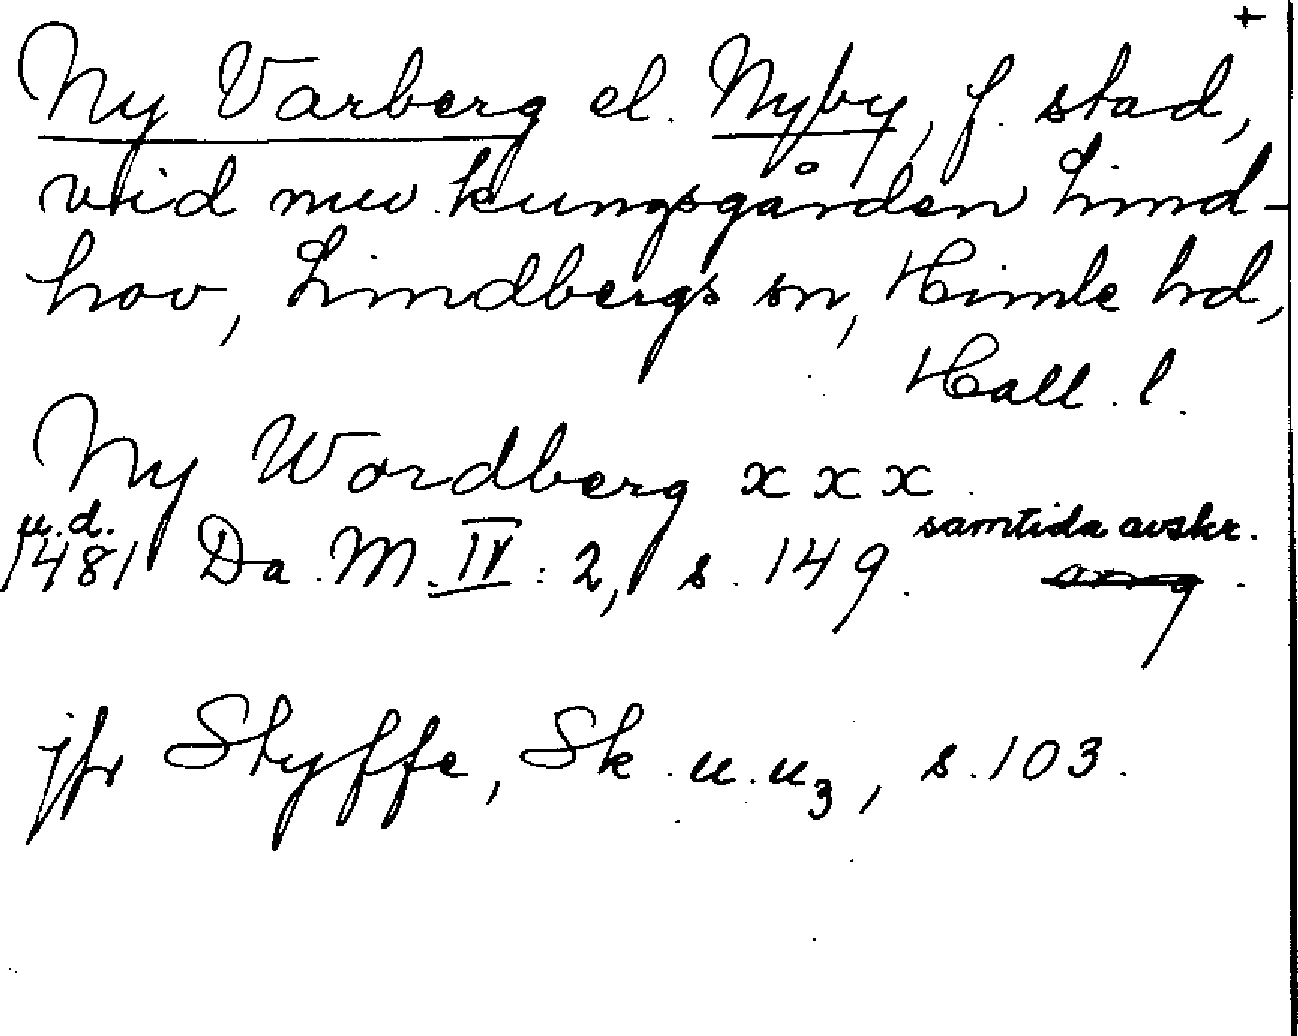 +
Ny Varberg el. Nyby, f. stad,
vid nuv. kungsgården Lind-
hov, Lindbergs sn, Himle hd,
Hall. l.
Ny Wordberg x x x.
u.d. samtida avskr.
1481 Da. M. IV: 2, s. 149. orig.
jfr Styffe, Sk. u. u3, s. 103.